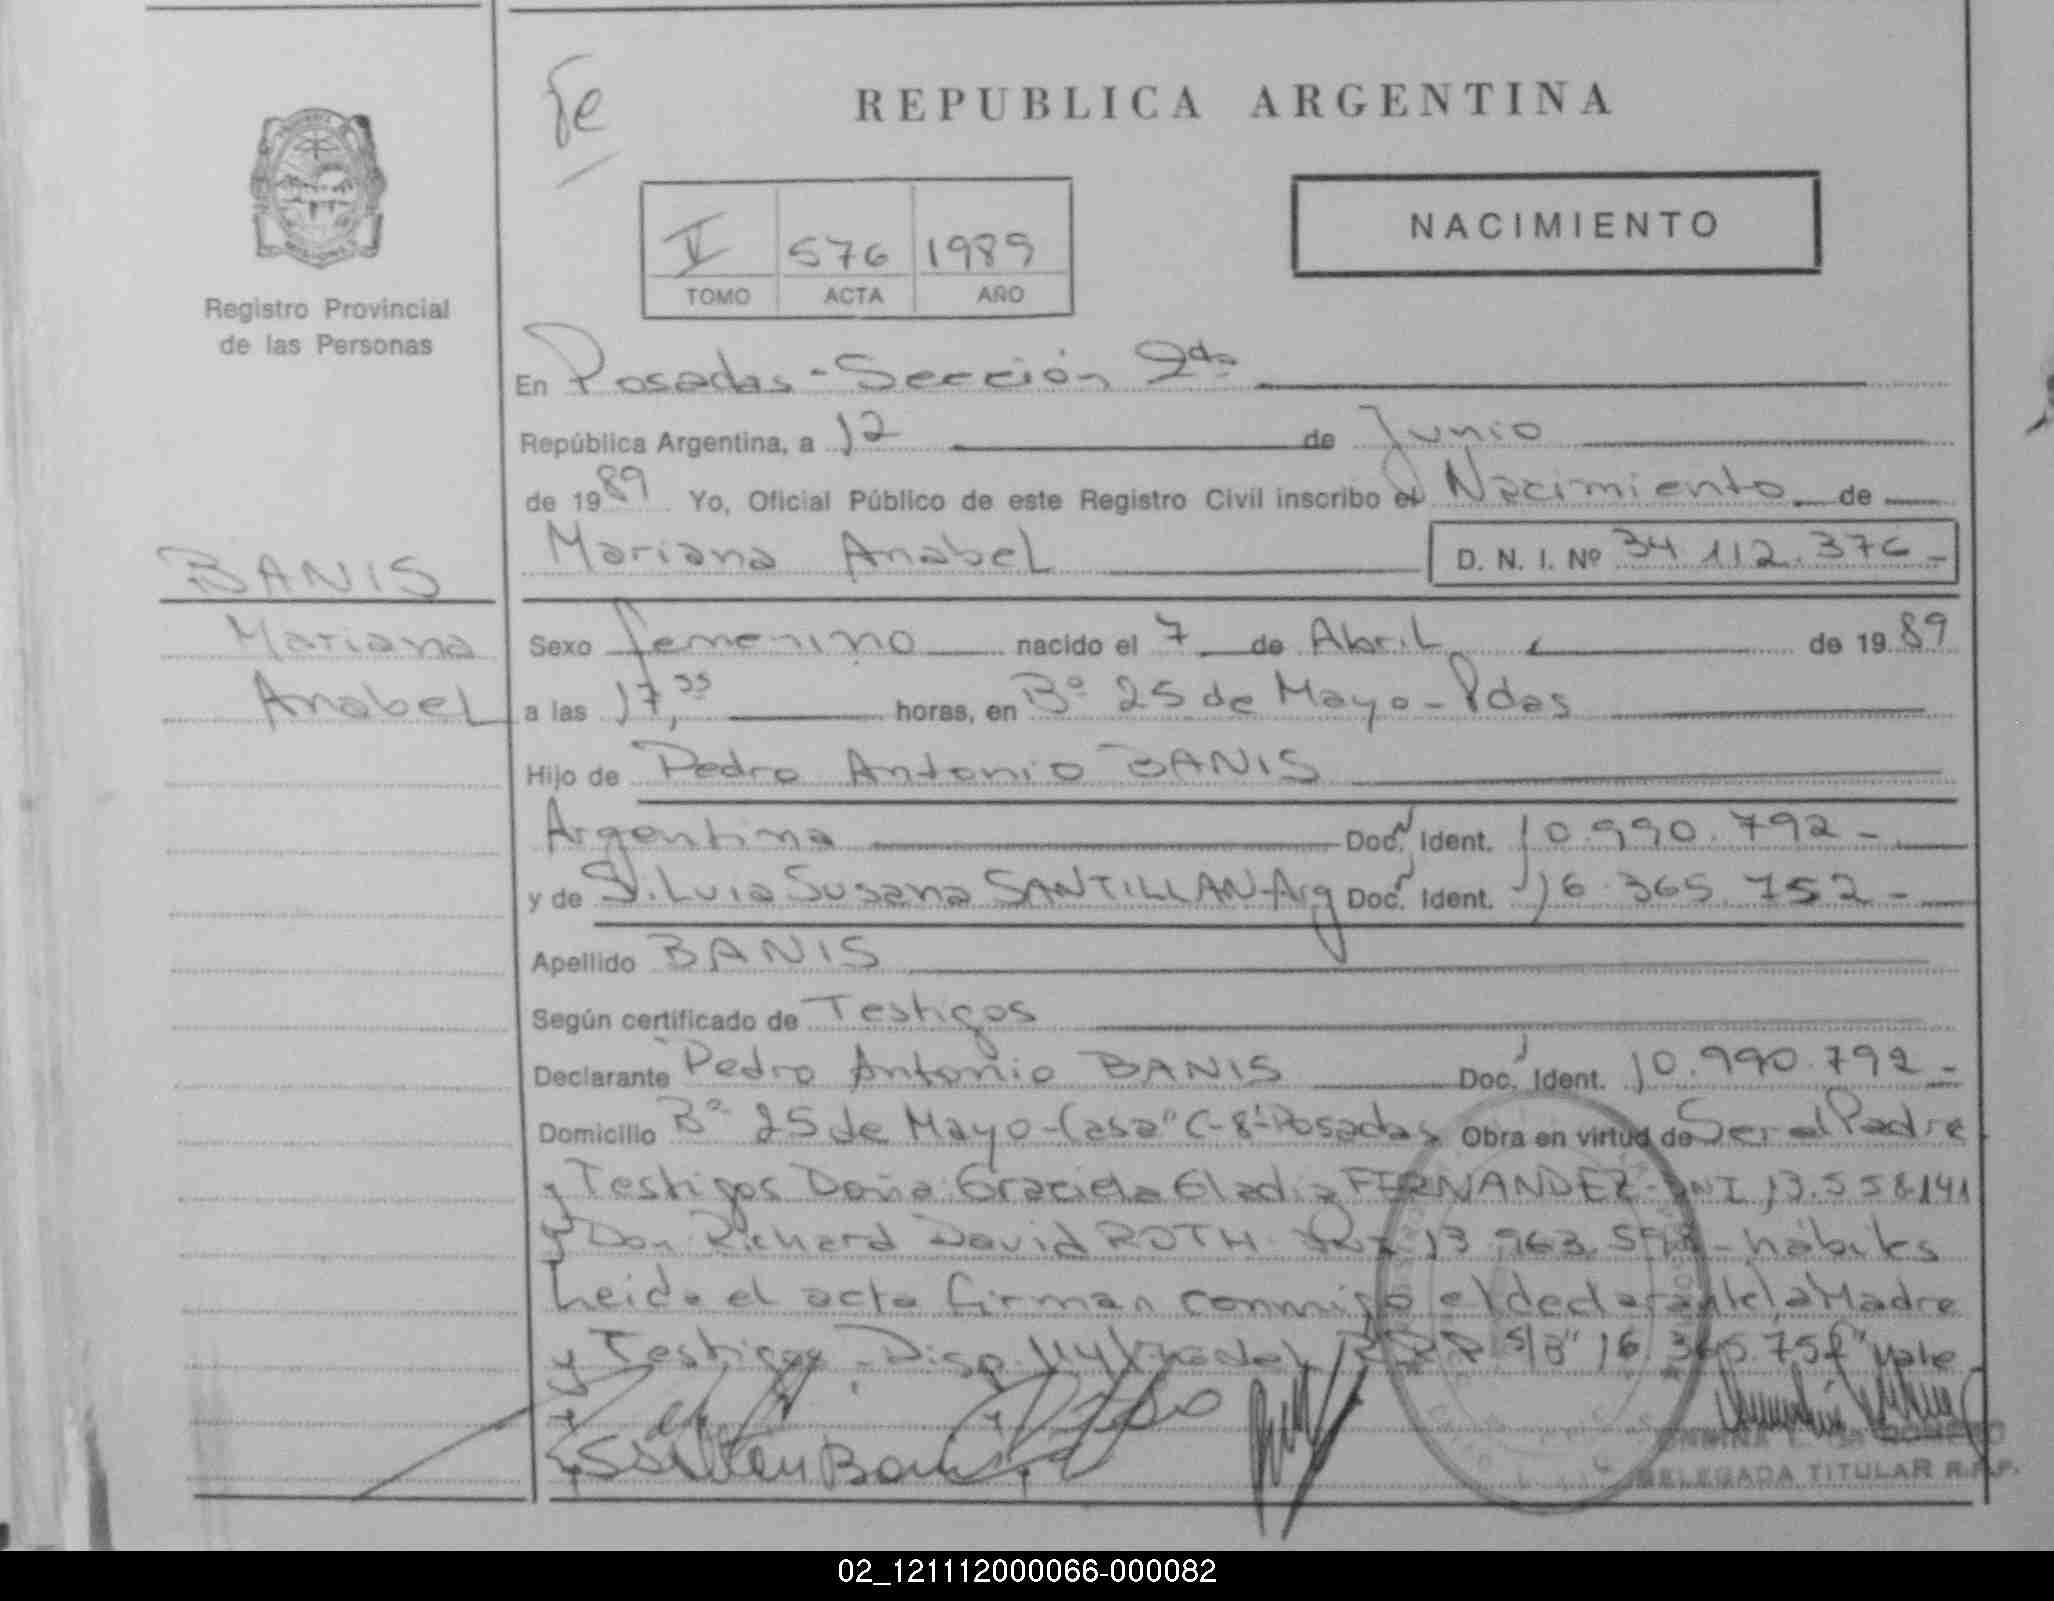 Fe
REPUBLICA ARGENTINA
NACIMIENTO
V 576 1989
TOMO ACTA AÑO
Registro Provincial
de las Personas
En Posadas - Sección 2da
República Argentina, a 12 de Junio
de 1989 Yo, Oficial Público de este Registro Civil inscribo el Nacimiento de
Mariana Anabel D. N. I. Nº 34 112.376-
BANIS
Mariana
Anabel
Sexo femenino nacido el 7 de Abril de 1989
a las 17,55 horas, en Bº 25 de Mayo - Pdas
Hijo de Pedro Antonio BANIS
Argentina Doc. Ident. 10.990.792-
y de Susana SANTILLAN-Arg Doc. Ident. 16 365.752-
Apellido BANIS
Según certificado de Testigos
Declarante Pedro Antonio BANIS Doc. Ident. 10.990.792-
Domicilio Bº 25 de Mayo - Casa "C-8"-Posadas Obra en virtud de Ser el Padre
y Testigos Doña Graciela Gladis FERNANDEZ-DNI 13.558.141
y Don Richard David ROTH 13 963. - hábiles
Leida el acta firman conmigo el declarante la Madre
y Testigos - Disp. R P P S/B "16 365.752" vale
DELEGADA TITULAR R.P.P.
02_121112000066-000082